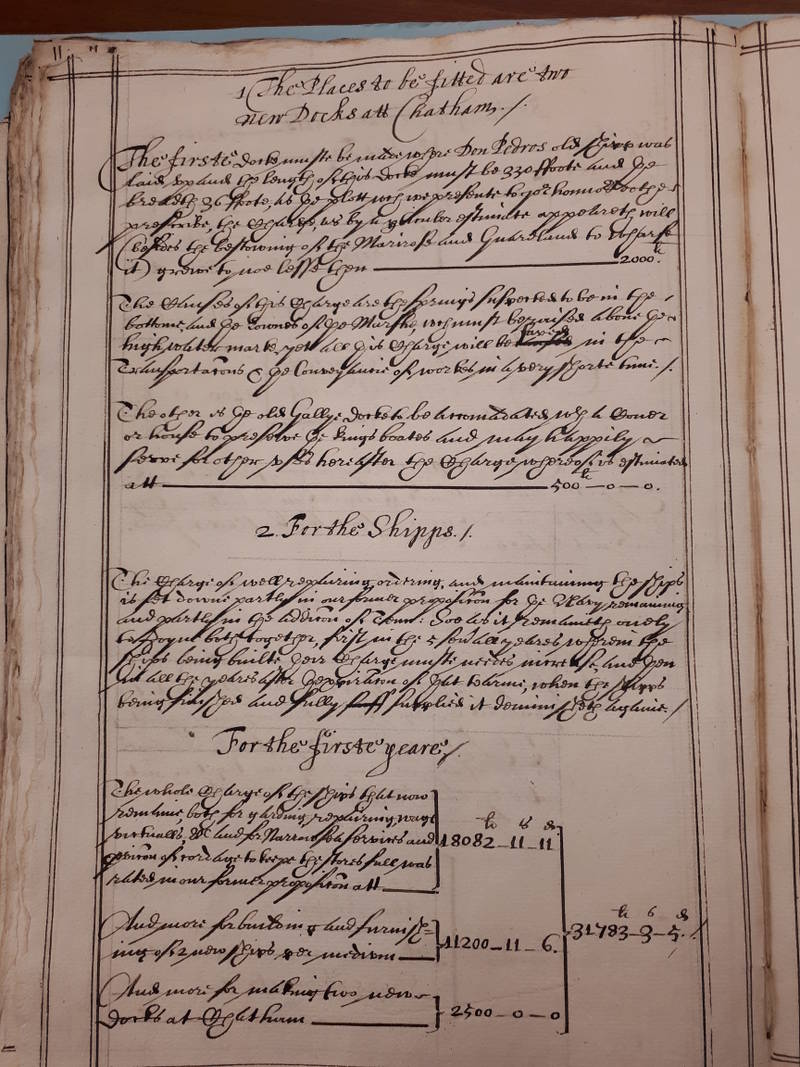 11
1 The Places to be fitted are two
new Docks att Chatham. /.
The firste docke muste be made where Don Pedros old shipp was
laid, and the length of this Docke must be 330 ffoote and ye
breadth 36 ffoote, as ye plott wch we presente to yor honnors
prescribe, the Charge, as by a particuler estimate appeareth will
(besides the bestowing of the Marirose and Guardland to wharfe
it) growe to noe lesse then 2000 li.
The Causes of this Charge are the springs suspected to be in the
bottome, and ye Lownes of ye Marshe, wch must be raised above ye
high water marke, yet all this Charge will be saved in the
Transportatons & ye Conveyance of workes in a very shorte time. /.
The other is ye old Gallye docke to be accomodated wth a Cover
or house to preserve ye kings boates and may happily
serve for other uses hereafter the Charge whereof is estimated
att 500 li — 0 — 0.
2. For the Shipps. /.
The Charge of well repairing, ordering, and maintaining the ships
is set downe partly in our former propositon for ye Navy remaining
and partly in the additon of Tenn: Soe as it remaineth onely
to Joyne both together, first in the 5 severall yeares wherein the
ships being builte, their Charge muste needes increase, and then
in all the yeares after thexpiraton of that tearme, when the shipps
being finished and fully supplied it deminisheth againe. /
For the firste yeare /.
The whole Charge of the ships that now
remaine, both for garding, repairing, wage
victualls, &c and for Narrow sea services and
provision of cordage to keepe the stores full was
rated in our former propositon att
li s d
18082 — 11 — 11
And more for building and furnish=
ing of 2 new ships per medium
11200 — 11 — 6.
And more for making two new
Docks at Chatham
2500 — 0 — 0
li s d
31783 — 3 — 5. /